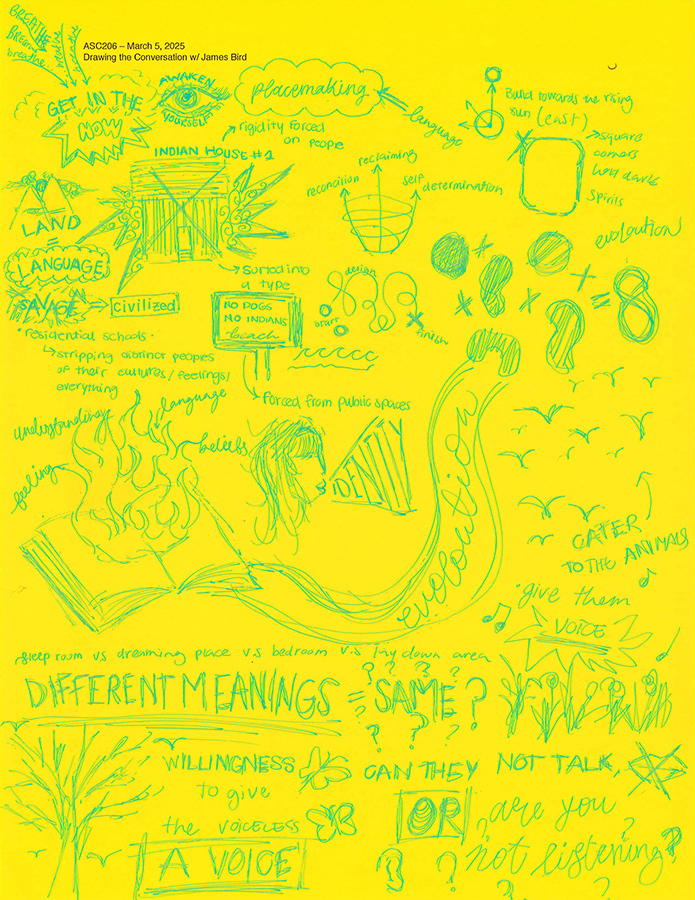 ASC206 – March 5, 2025
Drawing the Conversation w/ James Bird
BREATHE
Breathe
breathe..
breathe
breathe
GET IN THE
WOW
AWAKEN
YOURSELF
placemaking
language
Build towards the rising
sun (east)
square
corners
hold dark
spirits
rigidity forced
on people
INDIAN HOUSE #1
reclaiming
reconcition
self
determination
LAND
=
LANGUAGE
SAVAGE
civilized
Sorted into
a type
design
start
finish
evoloution
x
x
x
+
=
NO DOGS
NO INDIANS
beach
• residential schools •
stripping distinct peoples
of their cultures/feelings/
everything
Forced from public spaces
understanding
language
beliefs
feeling
IDENTITY
evoloution
CATER
TO THE ANIMALS
give them
VOICE
sleep room v.s dreaming place v.s bedroom v.s lay down area
DIFFERENT MEANINGS = SAME?
WILLINGNESS
to give
the VOICELESS
A VOICE
CAN THEY NOT TALK,
OR are you
not listening?